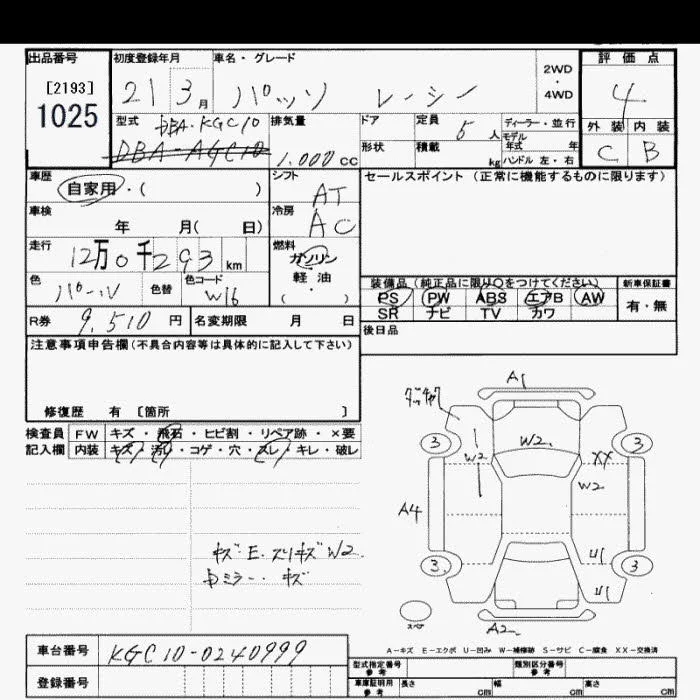 出品番号 初度登録年月 車名・グレード 2WD 評価点
[2193] 21 3月 パッソ レーシー ・ 4
1025 4WD
型式 DBA-KGC10 排気量 ドア 定員 5人 ディーラー・並行 外装 内装
DBA-AGC10 1.000cc 形状 積載 kg モデル年式 年 C B
ハンドル 左・右
車歴 自家用・( ) シフト AT セールスポイント (正常に機能するものに限ります)
車検 年 月( 日) 冷房 AC
走行 12万0千293km 燃料 ガソリン・軽油・( )
色 パール 色替 色コード W16 装備品(純正品に限り○をつけてください) 新車保証書
R券 9,510円 名変期限 月 日 PS PW ABS エアB AW 有・無
SR ナビ TV カワ
注意事項申告欄(不具合内容等は具体的に記入して下さい) 後日品
修復歴 有 [箇所 ]
検査員 FW キズ・飛石・ヒビ割・リペア跡・×要
記入欄 内装 キズ・汚れ・コゲ・穴・スレ・キレ・破レ
A1
3 W2 3
W2 XX
W2
A4
3 U1 3
U1
A2
スペア
キズ・E・スリキズW2
ミラー キズ
A-キズ E-エクボ U-凹み W-補修跡 S-サビ C-腐食 XX-交換済
車台番号 KGC10-0240999
型式指定番号 参考 類別区分番号 参考
登録番号 車庫証明用 参考 長さ cm 幅 cm 高さ cm